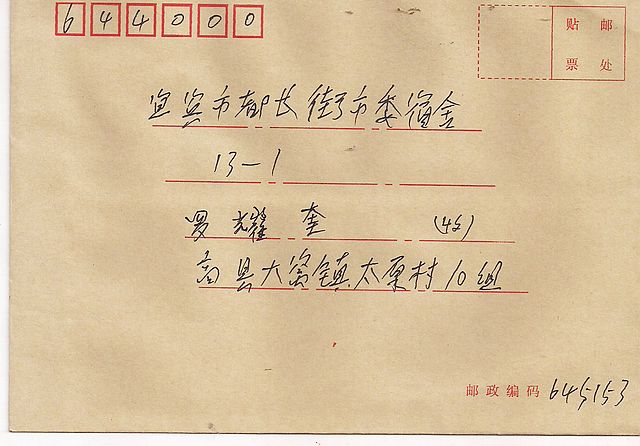 644000
贴 邮
票 处
宜宾市都长街市委宿舍
13-1
罗耀奎 (收)
高县大窝镇太原村10组
邮政编码 645153